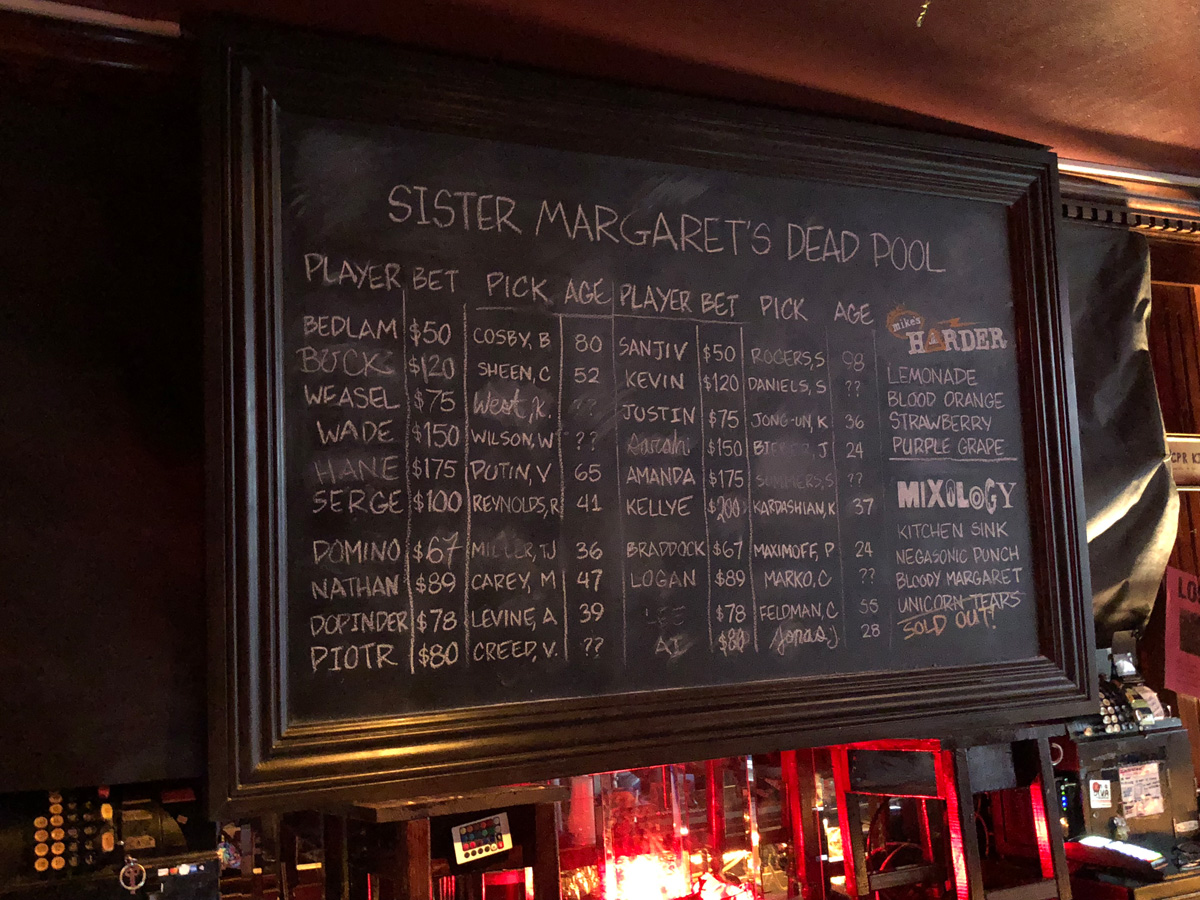 SISTER MARGARET'S DEAD POOL
PLAYER BET PICK AGE PLAYER BET PICK AGE
BEDLAM $50 COSBY, B 80 SANJIV $50 ROGERS, S 98
BUCK $120 SHEEN, C 52 KEVIN $120 DANIELS, S ??
WEASEL $75 West, K. ?? JUSTIN $75 JONG-UN, K 36
WADE $150 WILSON, W ?? Sarah $150 BIEBER, J 24
HANE $175 PUTIN, V 65 AMANDA $175 SUMMERS, S ??
SERGE $100 REYNOLDS, R 41 KELLYE $200 KARDASHIAN, K 37
DOMINO $67 MILLER, TJ 36 BRADDOCK $67 MAXIMOFF, P 24
NATHAN $89 CAREY, M 47 LOGAN $89 MARKO, C ??
DOPINDER $78 LEVINE, A 39 LEE $78 FELDMAN, C 55
PIOTR $80 CREED, V. ?? AI $80 Jonas, J 28
mike's
HARDER
LEMONADE
BLOOD ORANGE
STRAWBERRY
PURPLE GRAPE
MIXOLOGY
KITCHEN SINK
NEGASONIC PUNCH
BLOODY MARGARET
UNICORN TEARS
SOLD OUT!
CPR